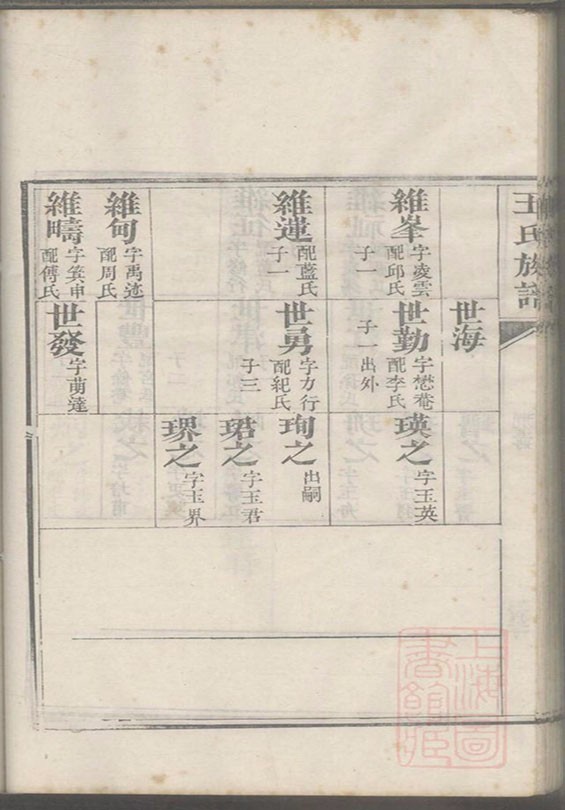 王氏族譜
世海
維峯
字凌雲
配邱氏
子一
世勤
字懋菴
配李氏
子一出外
瑛之
字玉英
維蓮
配藍氏
子一
世勇
字力行
配紀氏
子三
珣之
出嗣
珺之
字玉君
琾之
字玉界
維甸
字禹迹
配周氏
維疇
字箕申
配傅氏
世發
字萌達
上海圖
書館藏